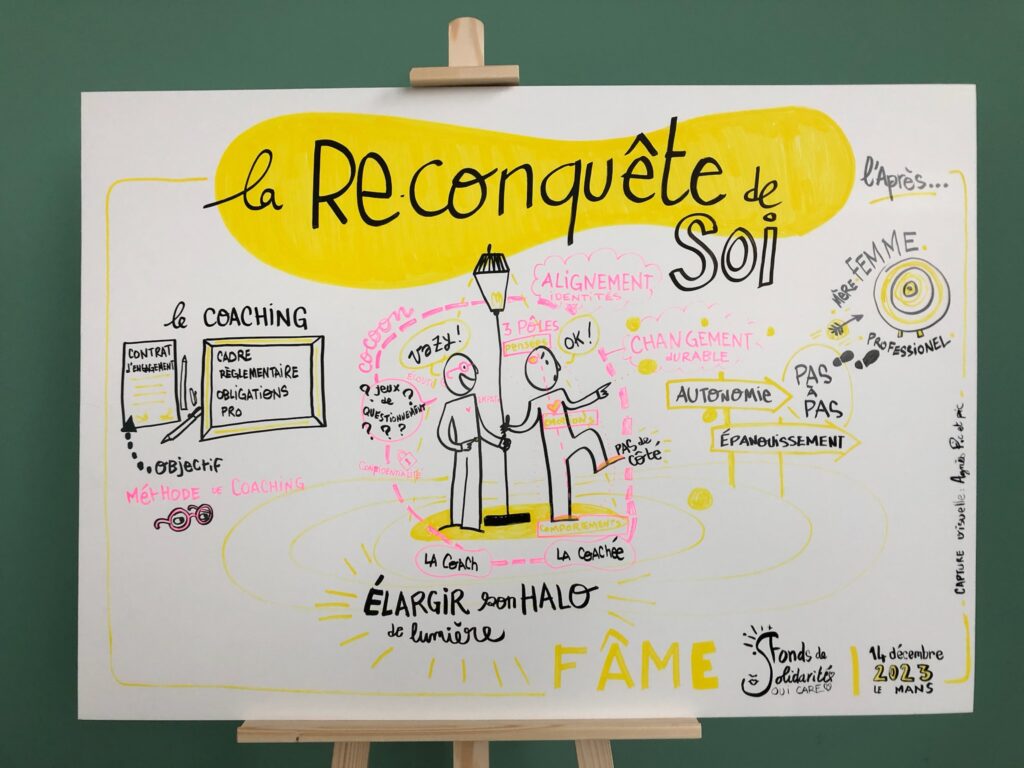 la REconquête de
Soi
l'Après...
le COACHING
CONTRAT
D'ENGAGEMENT
CADRE
RÈGLEMENTAIRE
OBLIGATIONS
PRO
OBJECTIF
MÉTHODE de COACHING
cocoon
Vazy!
ÉCOUTE
? JEUX ?
de
QUESTIONNEMENT
? ? ?
CONFIDENTIALITÉ
ALIGNEMENT
IDENTITÉS
3 PÔLES
PENSÉES
OK!
ÉMOTIONS
COMPOREMENTS
PAS de
CÔTÉ
LA COACH
LA COACHÉE
CHANGEMENT
DURABLE
AUTONOMIE
ÉPANOUISSEMENT
PAS
À
PAS
MÈRE
FEMME
PROFESSIONEL
ÉLARGIR son HALO
de lumière
FÂME
Fonds de
Solidarité
OUI CARE
14 décembre
2023
LE MANS
CAPTURE visuelle: Agnès Pic et pic